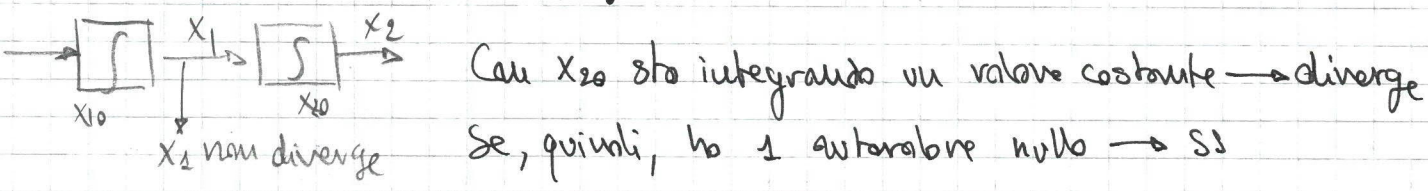 ∫ x1 ∫ x2
x10 x20
x1 non diverge
Con x20 sto integrando un valore costante → diverge
Se, quindi, ho 1 autovalore nullo → SS